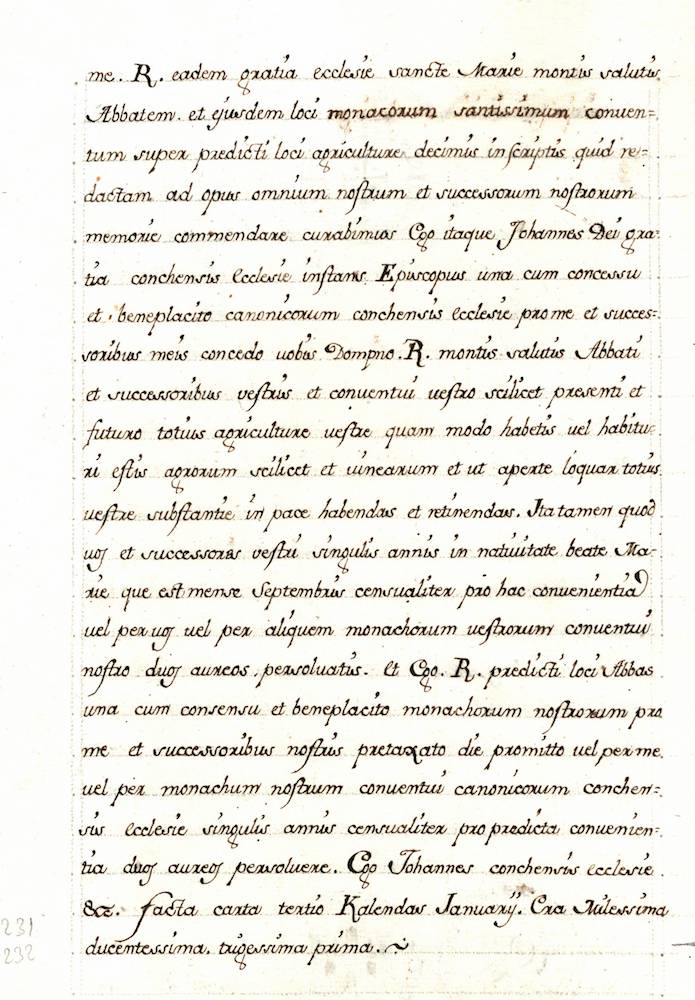 me. R. eadem gratia ecclesie sancte Marie montis salutis
Abbatem. et ejusdem loci monacorum santissimum conven=
tum super predicti loci agriculture decimis inscriptis quid re=
dactam ad opus omnium nostrum et successorum nostrorum
memorie commendare curabimus Ego itaque Johannes Dei gra=
tia conchensis Ecclesie instans Episcopus una cum concessu
et beneplacito canonicorum conchensis Ecclesie pro me et succes=
soribus meis concedo uobis Dompno. R. montis salutis Abbati
et successoribus vestris et conventui vestro scilicet presenti et
futuro totius agriculture vestre quam modo habetis vel habitu=
ri estis agrorum scilicet et vinearum et ut aperte loquar totius
vestre substantie in pace habendas et retinendas. Ita tamen quod
vos et successores vestri singulis annis in nativitate beate Ma=
rie que est mense Septembris censualiter pro hac convenientia
vel per vos vel per aliquem monachorum vestrorum conventui
nostro duos aureos persolvatis. Et Ego. R. predicti loci Abbas
una cum consensu et beneplacito monachorum nostrorum pro
me et successoribus nostris pretaxato die promitto vel per me
vel per monachum nostrum conventui canonicorum conchen=
sis ecclesie singulis annis censualiter pro predicta convenien=
tia duos aureos persolvere. Ego Johannes conchensis ecclesie
&c. facta carta tertio Kalendas Januarij. Era Milessima
ducentessima. trigessima prima.
231
232